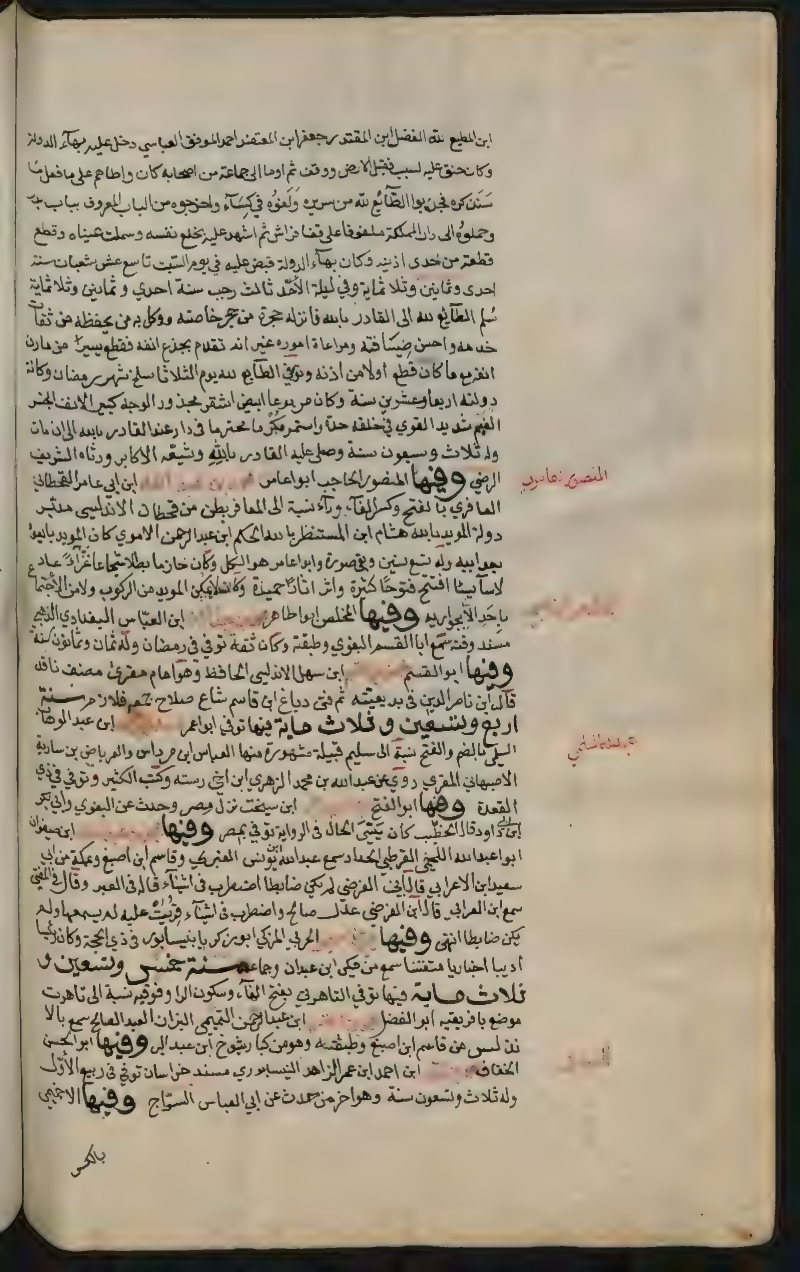 ابن المطيع لله الفضل ابن المقتدر جعفر ابن المعتضد احمد الموفق العباسي دخل عليه بهآء الدولة
وكان حنق عليه لسبب فقبل الارض ووقف ثم اوما الى جماعة من اصحابه كان واطاهم على ما فعل
الطّايع لله من سريره ولفوه في كسآء واخرجوه من الباب المعروف بباب
وحملوه الى دار المملكة ملفوفا على قفا فراش ثم اشهد عليه بخلع نفسه وسملت عيناه وقطع
قطعة من احدى اذنيه وكان بهآء الدولة قبض عليه في يوم السّبت تاسع عشر شعبان سنة
احدى وثمانين وثلاثماية وفي ليلة الاحد ثالث رجب سنة احدي وثمانين وثلاثماية
سُلم الطّايع لله الى القادر بالله فانزله حجرة من حجر خاصته ووكل به من يحفظه من ثقات
خدمه واحسن ضيافته ومراعاة اموره غير انه تقدم بجذع انفه فقطع يسيرا من مارن
انفه مع ما كان قطع اولا من اذنه وتوفي الطّايع لله يوم الثلاثا سلخ شهر رمضان وكانة
دولته اربعا وعشرين سنة وكان مربوعا ابيض اشقر مجدور الوجه كبير الانف ابخر
الفم شديد القوي في خلقه حدة واستمر مكرما محترما في دار عند القادر بالله الى ان مات
وله ثلاث وسبعون سنة وصلى عليه القادر بالله وشيعه الاكابر ورثاه الشريف
الرضي وفيها المنصور الحاجب ابو اعامر ابن ابي عامر القحطاني
المعافري بالفتح وكسر الفآء ورآء نسبة الى المعافر بطن من قحطان الاندلسي مدبر
دولة المويد بالله هشام ابن المستنصر بالله الحكم ابن عبد الرحمن الاموي كان المويد بايعوا
بعد ابيه وله تسع سنين وبقي صورة وابو اعامر هو الكل وكان حازما بطلا شجاعا غزّآءً عادلا
سآيسا افتتح فتوحًا كثيرة واثر اثارًا حميدة وكان لا يمكن المويد من الركوب ولا من الاجتماع
باحد الا بجواريه وفيها المخلص ابو اطاهر ابن العبّاس البغدادي الذهبي
مسند وقته سمع ابا القسم البغوي وطبقته وكان ثقة توفي في رمضان وله ثمان وثمانون سنة
وفيها ابو القسم ابن سهل الاندلسي الحافظ وهو امام مقرئ مصنف ناقد
قال ابن ناصر الدين في بديعيته ثم فتى دباغ ابن قاسم شاع صلاح سنة
اربع وتسعين وثلاث ماية فيها توفي ابو اعمر ابن عبد الوهاب
السلمي بالضم والفتح نسبة الى سليم قبيلة مشهورة منها العباس ابن مرداس والعرباض بن سارية
الاصبهاني المقري روي عن عبد الله بن محمد الزهري ابن اخي رسته وكتب الكثير وتوفي في ذي
القعدة وفيها ابو الفتح ابن سيبخت نزل مصر وحدث عن البغوي وابي بكر
ابن ابي داود قال الخطيب كان سيّئ الحال في الرواية توفي بمصر وفيها ابن صيفون
ابو اعبد الله اللخمي القرطبي الحداد سمع عبد الله ابن يونس القبري وقاسم ابن اصبغ وبمكة من ابي
سعيد ابن الاعرابي قال ابن الفرضي لم يكن ضابطا اضطرب في اشيآء قاله في العبر وقال في المغني
سمع ابن العرابي قال ابن الفرضي عدل صالح واضطرب في اشيآء قرئت عليه لم يسمعها ولم
يكن ضابطا انتهى وفيها الحربي المزكي ابو بزكريا بنيسابور في ذي الحجة وكان رئيسا
اديبا اخباريا متفننا سمع من مكي ابن عبدان وجماعة سنة خمس وتسعين و
ثلاث ماية فيها توفي التاهرتي بفتح الهآء وسكون الرا وفوقيه نسبة الى تاهرت
موضع بافريقيه ابو الفضل ابن عبد الرحمن التميمي البزاز العبد الصالح سمع بالا
ندلس من قاسم ابن اصبغ وطبقته وهو من كبار شيوخ ابن عبد البر وفيها ابو الحسن
الخفاف ابن احمد ابن عمر الزاهد النيسبوري مسند خراسان توفي في ربيع الاول
وله ثلاث وتسعون سنة وهو اخر من حدث عن ابي العباس السرّاج وفيها الاخميمي
بالكسر